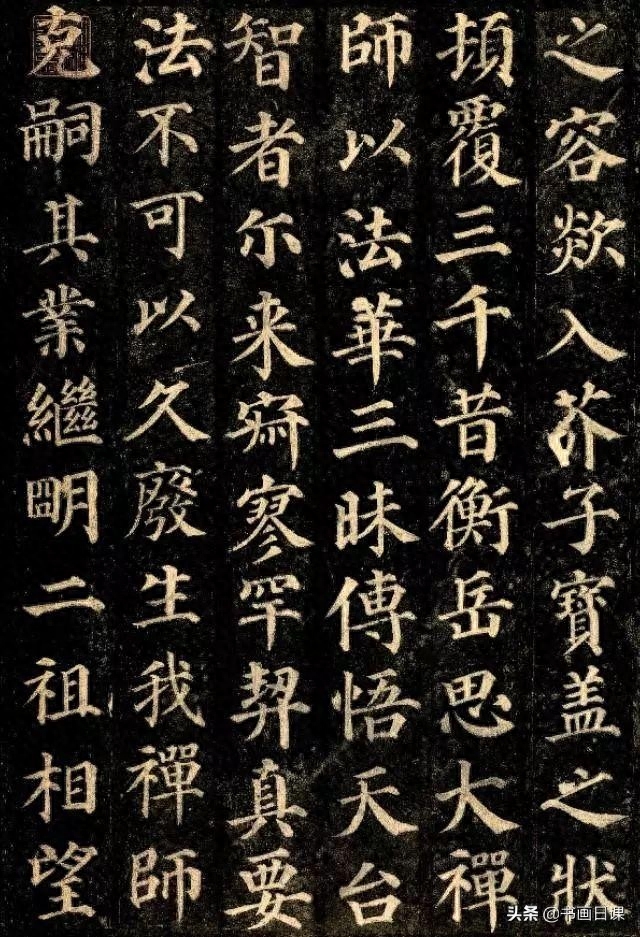 之容欻入芥子寶盖之狀
頂覆三千昔衡岳思大禪
師以法華三昧傳悟天台
智者尓来寂寥罕契真要
法不可以久廢生我禪師
克嗣其業繼朙二祖相望
头条 @书画日课